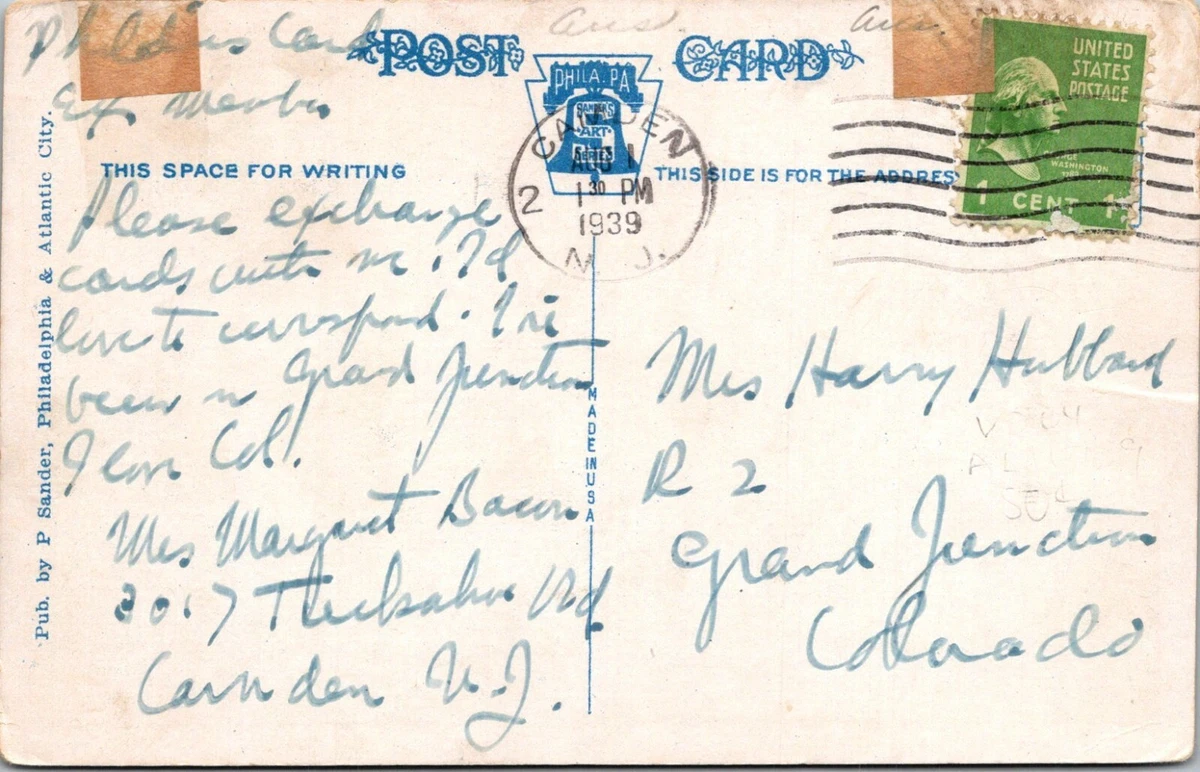 Card
Ex Member
ans.
ans.
POST CARD
PHILA. PA.
SANDERS
ART
SERIES
THIS SPACE FOR WRITING
THIS SIDE IS FOR THE ADDRES
CAMDEN
AUG 1
1 30 PM
1939
N. J.
2
UNITED
STATES
POSTAGE
GEORGE
WASHINGTON
1 CENT 1
Please exchange
cards with me. I'd
love to correspond. I've
been in Grand Junction
I love Col.
Mrs Margaret Bacon
3017 Tuckahoe Rd
Camden N.J.
Pub. by P Sander, Philadelphia & Atlantic City.
MADE IN USA
Mrs Harry Hubbard
R 2
Grand Junction
Colorado